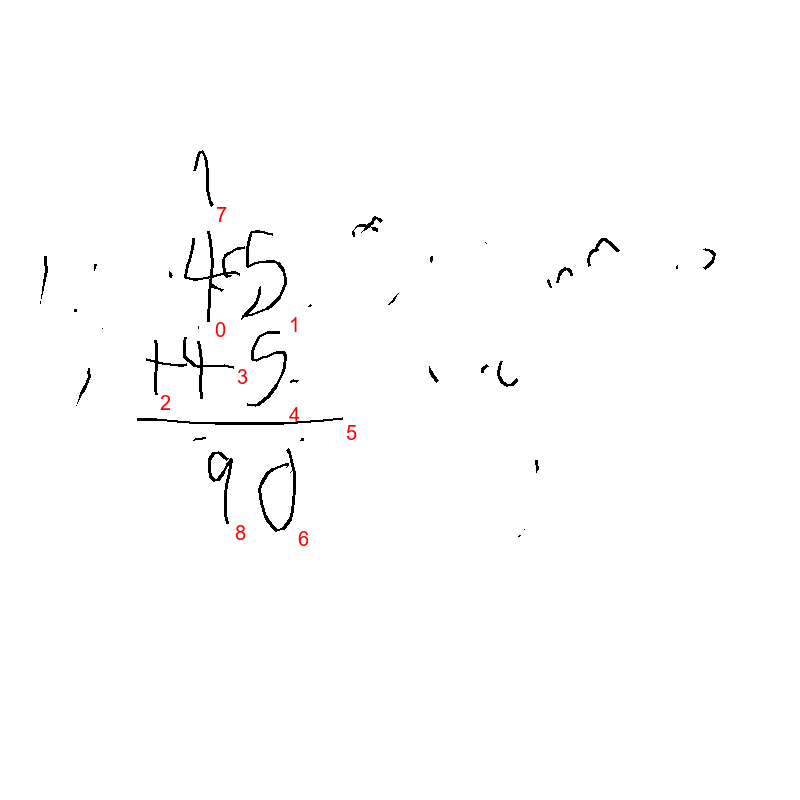 1
7
45
0 1
+45
2 3 4
5
90
8 6